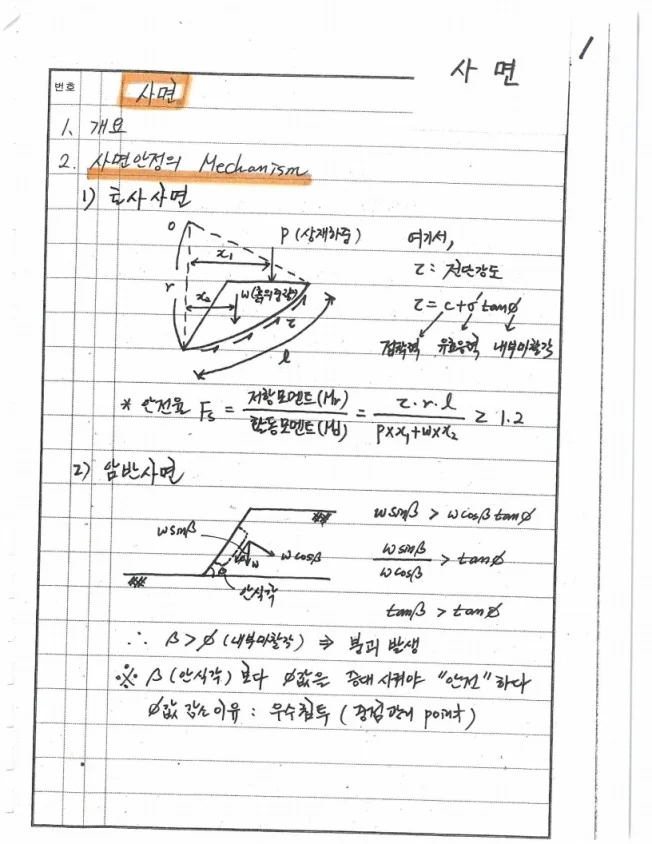 사면
1
번호
사면
1. 개요
2. 사면안정의 Mechanism
1) 토사사면
O
P (상재하중)
x₁
r
x₂
W(흙의중량)
τ
l
여기서,
τ : 전단강도
τ = c + σ' tanø
점착력 유효응력 내부마찰각
* 안전율 Fs = 저항모멘트(Mr) / 활동모멘트(Md) = τ·r·l / P×x₁+W×x₂ ≥ 1.2
2) 암반사면
wsinβ
wcosβ
w
β
안식각
wsinβ > wcosβ tanø
wsinβ / wcosβ > tanø
tanβ > tanø
∴ β > ø (내부마찰각) ⇒ 붕괴 발생
※ β (안식각) 보다 ø값은 증대 시켜야 "안전"하다
ø값 감소이유 : 우수침투 (중점관리 point)